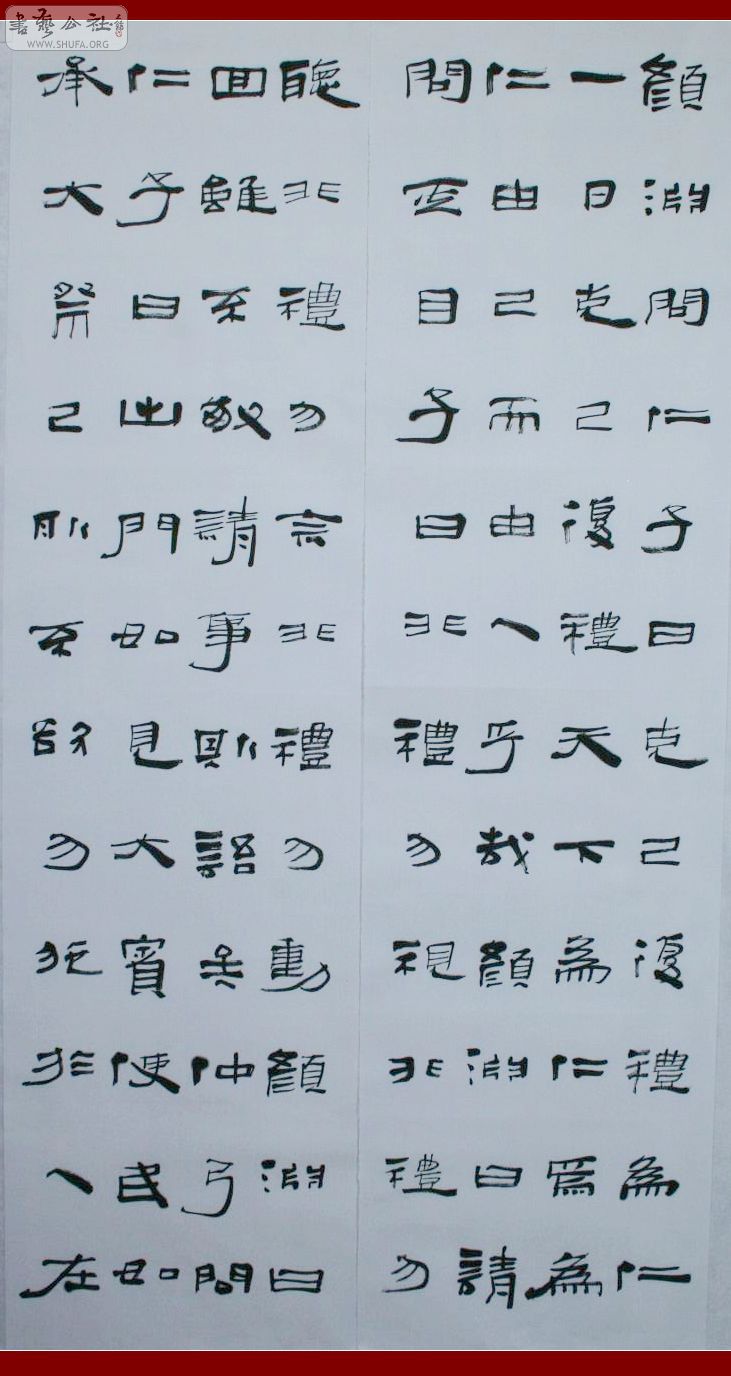 書藝公社
WWW.SHUFA.ORG
顏淵問仁子曰克己復禮為仁
一日克己復禮天下為仁焉為
仁由己而由人乎哉顏淵曰請
問其目子曰非禮勿視非禮勿
聽非禮勿言非禮勿動顏淵曰
回雖不敏請事斯語矣仲弓問
仁子曰出門如見大賓使民如
承大祭己所不欲勿施於人在